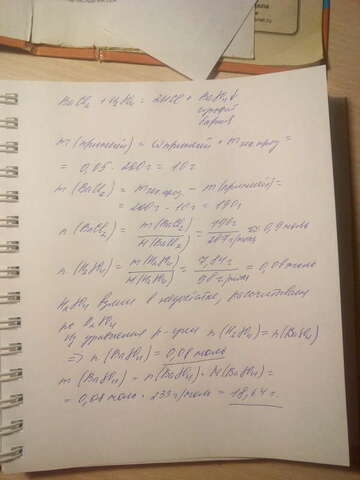 BaCl₂ + H₂SO₄ = 2HCl + BaSO₄↓
сульфат
бария
m(примесей) = ω примесей * m тех. прод =
= 0,05 · 200г = 10г
m(BaCl₂) = m тех. прод - m(примесей) =
= 200г - 10г = 190г
n(BaCl₂) = m(BaCl₂)/M(BaCl₂) = 190г/207г/моль ≈ 0,9 моль
n(H₂SO₄) = m(H₂SO₄)/M(H₂SO₄) = 7,84г/98 г/моль = 0,08 моль
H₂SO₄ взят в недостатке, рассчитываем
по H₂SO₄
Из уравнения р-ции n(H₂SO₄) = n(BaSO₄)
=> n(BaSO₄) = 0,08 моль
m(BaSO₄) = n(BaSO₄) · M(BaSO₄) =
= 0,08 моль · 233 г/моль = 18,64 г.